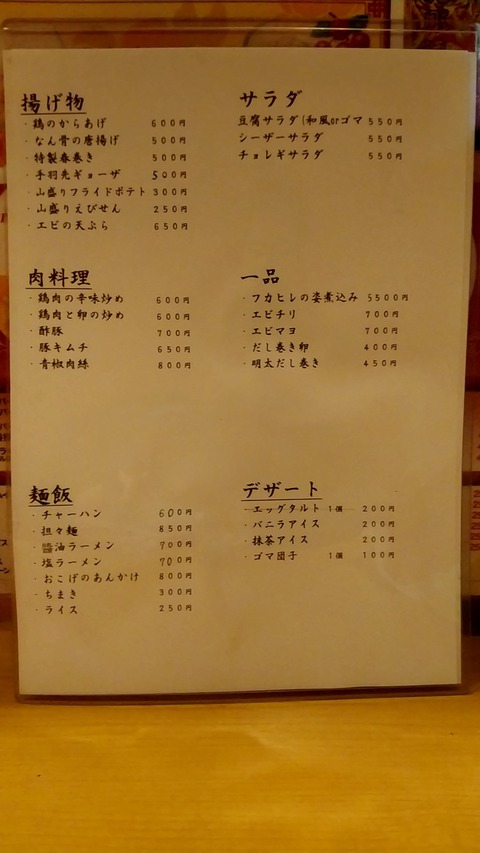 揚げ物
・鶏のからあげ 600円
・なん骨の唐揚げ 500円
・特製春巻き 500円
・手羽先ギョーザ 500円
・山盛りフライドポテト 300円
・山盛りえびせん 250円
・エビの天ぷら 650円
サラダ
豆腐サラダ(和風orゴマ 550円
シーザーサラダ 550円
チョレギサラダ 550円
肉料理
・鶏肉の辛味炒め 600円
・鶏肉と卵の炒め 600円
・酢豚 700円
・豚キムチ 650円
・青椒肉絲 800円
一品
・フカヒレの姿煮込み 5500円
・エビチリ 700円
・エビマヨ 700円
・だし巻き卵 400円
・明太だし巻き 450円
麺飯
・チャーハン 600円
・担々麺 850円
・醤油ラーメン 700円
・塩ラーメン 700円
・おこげのあんかけ 800円
・ちまき 300円
・ライス 250円
デザート
・エッグタルト 1個 200円
・バニラアイス 200円
・抹茶アイス 200円
・ゴマ団子 1個 100円